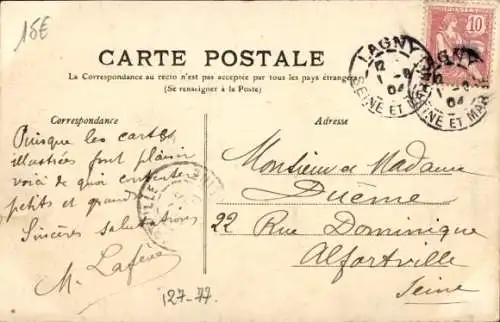 15€
10
POSTES
LAGNY
12
1 - 9
04
SEINE ET MARNE
CARTE POSTALE
La Correspondance au recto n'est pas acceptée par tous les pays étrangers
(Se renseigner à la Poste)
Correspondance
Adresse
Puisque les cartes
illustrées font plaisir
voici de quoi contenter
petits et grands
Sincères salutations
M. Laféré
Monsieur et Madame
22 Rue Dominique
Alfortville
Seine
127-77